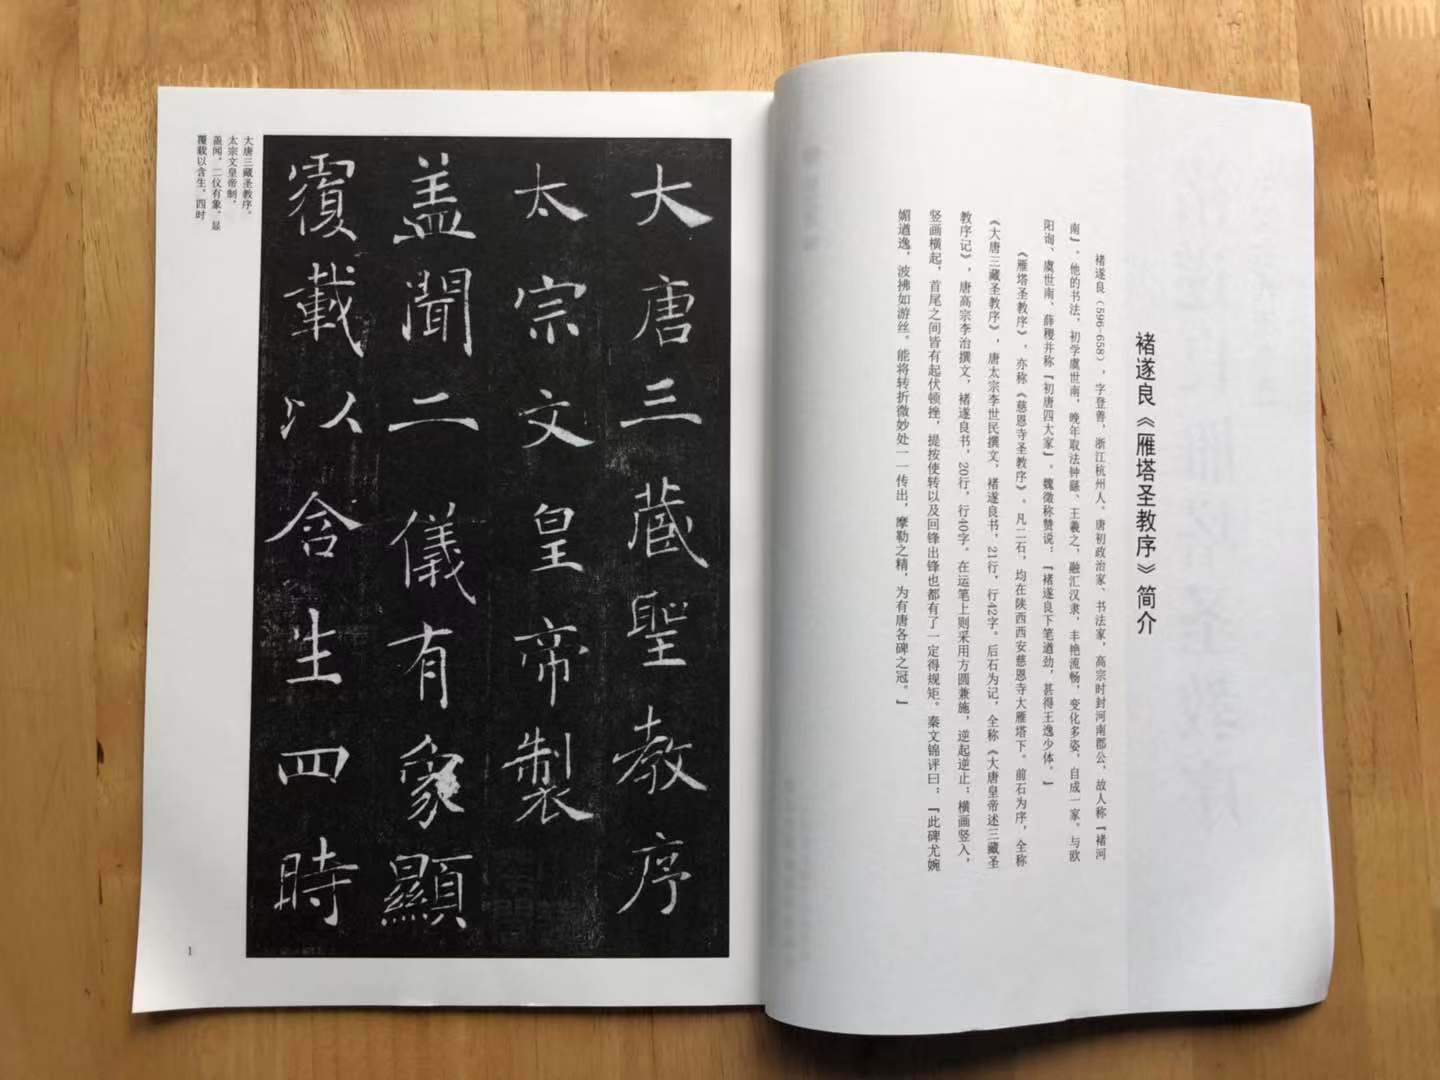 褚遂良《雁塔圣教序》简介
褚遂良(596-658),字登善,浙江杭州人、唐初政治家、书法家,高宗时封河南郡公,故人称『褚河
南』、他的书法,初学虞世南,晚年取法钟繇、王羲之,融汇汉隶,丰艳流畅,变化多姿,自成一家。与欧
阳询、虞世南、薛稷并称『初唐四大家』。魏徵称赞说:『褚遂良下笔遒劲,甚得王逸少体。』
《雁塔圣教序》,亦称《慈恩寺圣教序》。凡二石,均在陕西西安慈恩寺大雁塔下。前石为序,全称
《大唐三藏圣教序》,唐太宗李世民撰文,褚遂良书,21行,行42字。后石为记,全称《大唐皇帝述三藏圣
教序记》,唐高宗李治撰文,褚遂良书,20行,行40字。在运笔上则采用方圆兼施,逆起逆止;横画竖入,
竖画横起,首尾之间皆有起伏顿挫,提按使转以及回锋出锋也都有了一定得规矩。秦文锦评曰:『此碑尤婉
媚遒逸,波拂如游丝。能将转折微妙处一一传出,摩勒之精,为有唐各碑之冠。』
大唐三藏聖教序
太宗文皇帝製
盖聞二儀有象顯
覆載以含生四時
大唐三藏圣教序。
太宗文皇帝制。
盖闻,二仪有象,显
覆载以含生,四时
1